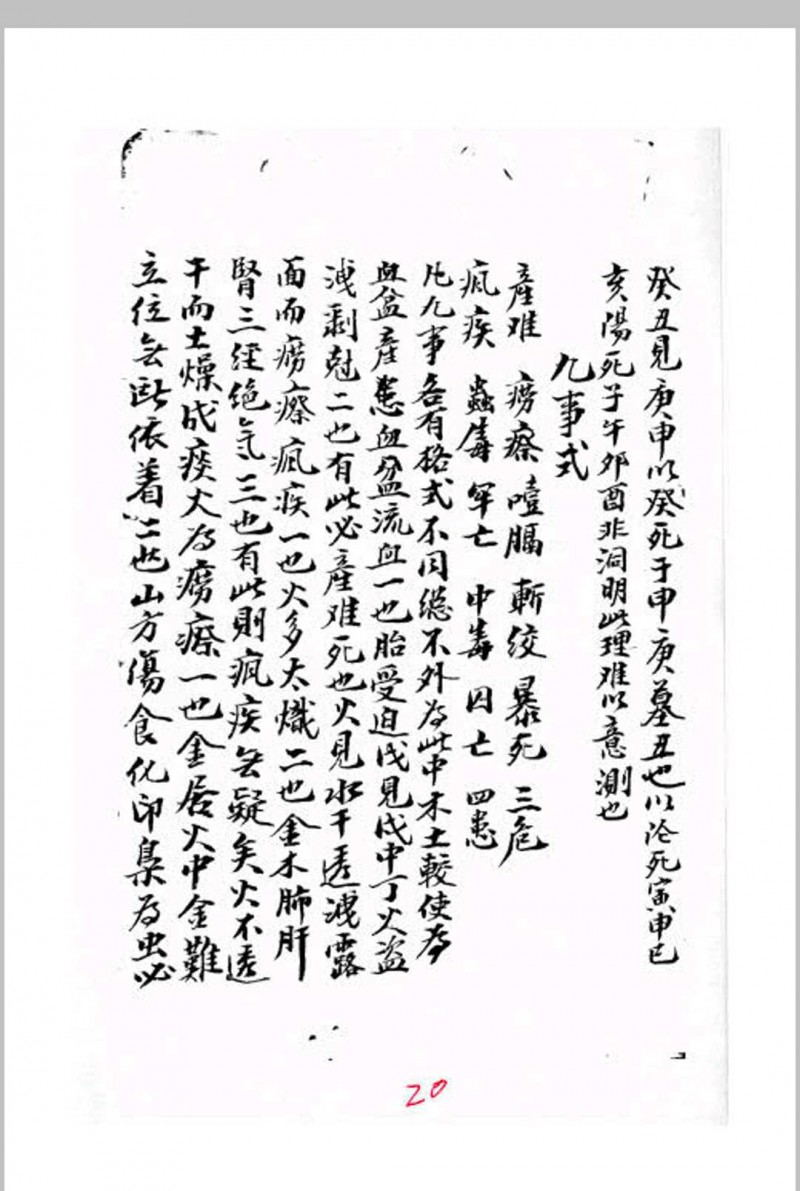 癸丑見庚申以癸死于申庚墓丑也以论死寅申巳
亥陽死子午卯酉非洞明此理难以意測也
九事式
產难 痨瘵 噎膈 斬绞 暴死 三危
疯疾 蟲毒 牢亡 中毒 囚亡 四患
凡九事各有格式不同總不外為此中木土較使为
血盆產患血盆流血一也胎受迫戊見戊中丁火盜
洩剥尅二也有此必產难死也火見水干透洩露
面而痨瘵疯疾一也火多太熾二也金木肺肝
腎三经绝气三也有此則疯疾無疑矣火不透
干而土燥成痰火为痨瘵一也金居火中金難
立位無依着二也山方傷食化印梟为虫必
20